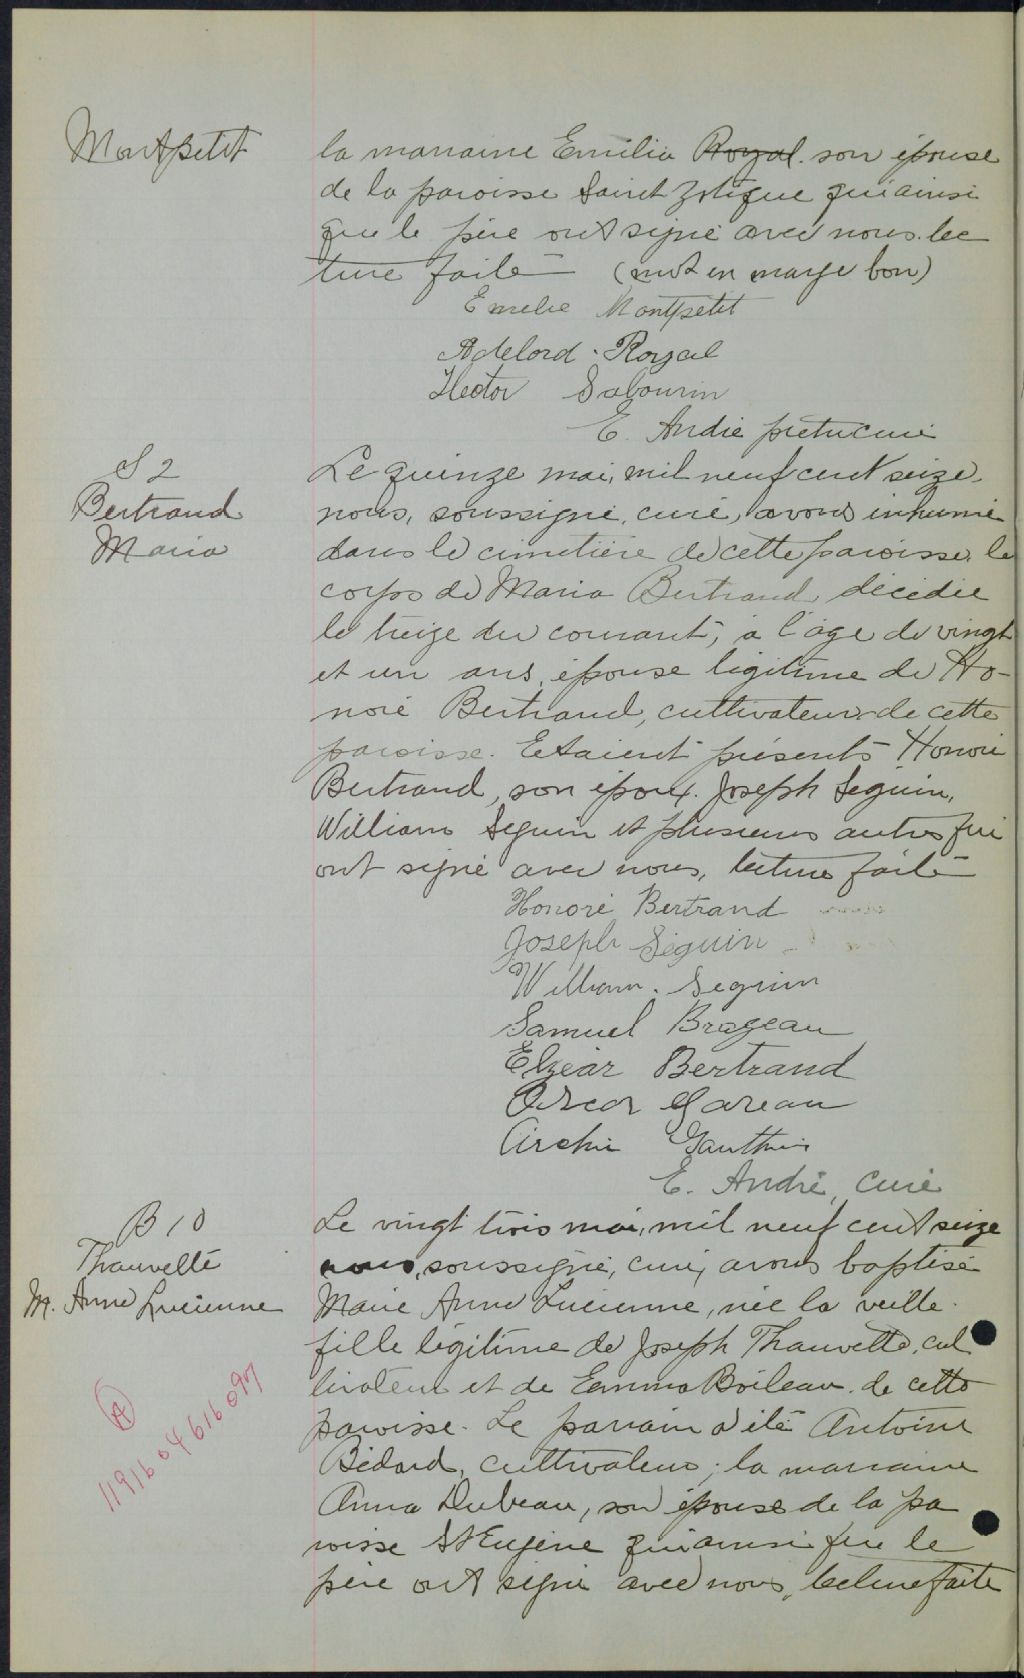 Montpetit
la marraine Emilia Royal. son épouse
de la paroisse Saint Zotique qui ainsi
que le père ont signé avec nous. lec
ture faite (mot en marge bon)
Emelie Montpetit
Adelord Royal
Hector Sabourin
E. André prêtre curé
S 2
Bertrand
Maria
Le quinze mai, mil neuf cent seize,
nous, soussigné, curé, avons inhumé
dans le cimetière de cette paroisse, le
corps de Maria Bertrand, décédée
le treize du courant, à l'âge de vingt
et un ans, épouse légitime de Ho-
noré Bertrand, cultivateur de cette
paroisse. Etaient présents Honoré
Bertrand, son époux. Joseph Seguin,
William Seguin et plusieurs autres qui
ont signé avec nous, lecture faite
Honoré Bertrand
Joseph Séguin
William. Seguin
Samuel Brazeau
Elzéar Bertrand
Oscar Gareau
Archie Gauthier
E. André, curé
B 10
Thauvette
M. Anne Lucienne
Le vingt trois mai, mil neuf cent seize
nous, soussigné, curé, avons baptisé
Marie Anne Lucienne, née la veille
fille légitime de Joseph Thauvette, cul
tivateur et de Emma Boileau. de cette
paroisse. Le parrain a été Antoine
Bédard, cultivateur; la marraine
Anna Dubeau, son épouse de la pa
roisse St Eugène qui ainsi que le
père ont signé avec nous, lecture faite
A
119160461609